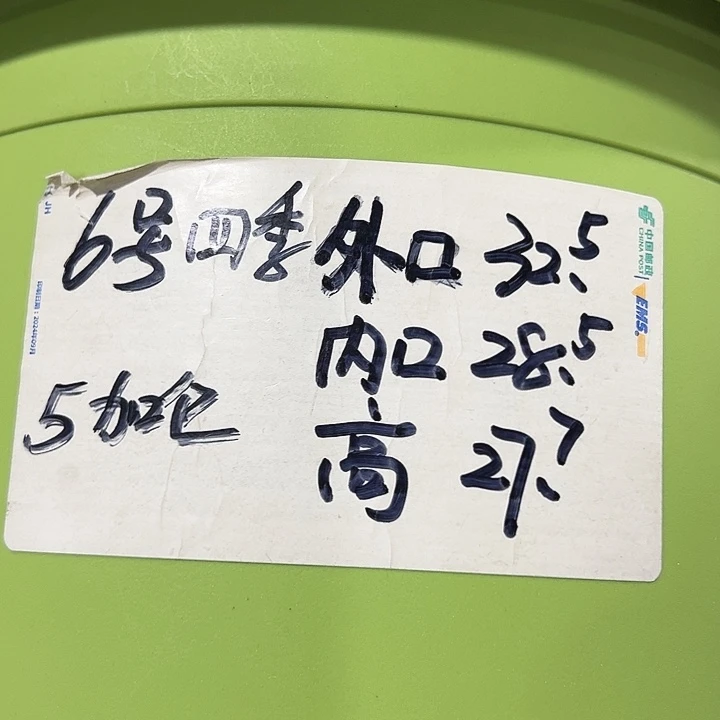 6号四季 外口 32.5
内口 28.5
5加仑
高 27.7
中国邮政
CHINA POST
EMS
JH